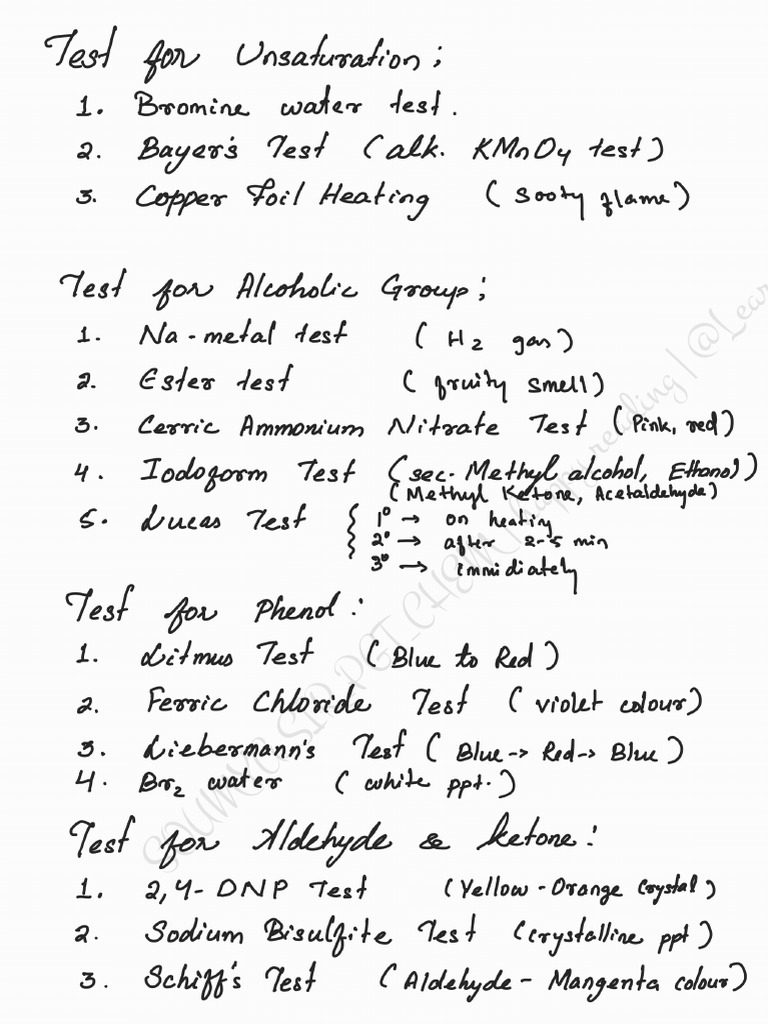 Test for Unsaturation;
1. Bromine water test.
2. Bayer's Test (alk. KMnO4 test)
3. Copper Foil Heating (Sooty flame)
Test for Alcoholic Group;
1. Na-metal test (H2 gas)
2. Ester test (fruity smell)
3. Cerric Ammonium Nitrate Test (Pink, red)
4. Iodoform Test (sec. Methyl alcohol, Ethanol)
(Methyl Ketone, Acetaldehyde)
5. Lucas Test { 1° → on heating
2° → after 2-5 min
3° → immidiately
Test for Phenol:
1. Litmus Test (Blue to Red)
2. Ferric Chloride Test (violet colour)
3. Liebermann's Test (Blue -> Red -> Blue)
4. Br2 water (white ppt.)
Test for Aldehyde & ketone:
1. 2,4-DNP Test (Yellow-Orange Crystal)
2. Sodium Bisulfite Test (crystalline ppt)
3. Schiff's Test (Aldehyde - Mangenta colour)